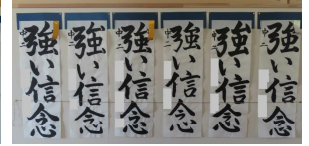 強い信念
中二
強い信念
中二
強い信念
中二
強い信念
中二
強い信念
中二
強い信念
中二